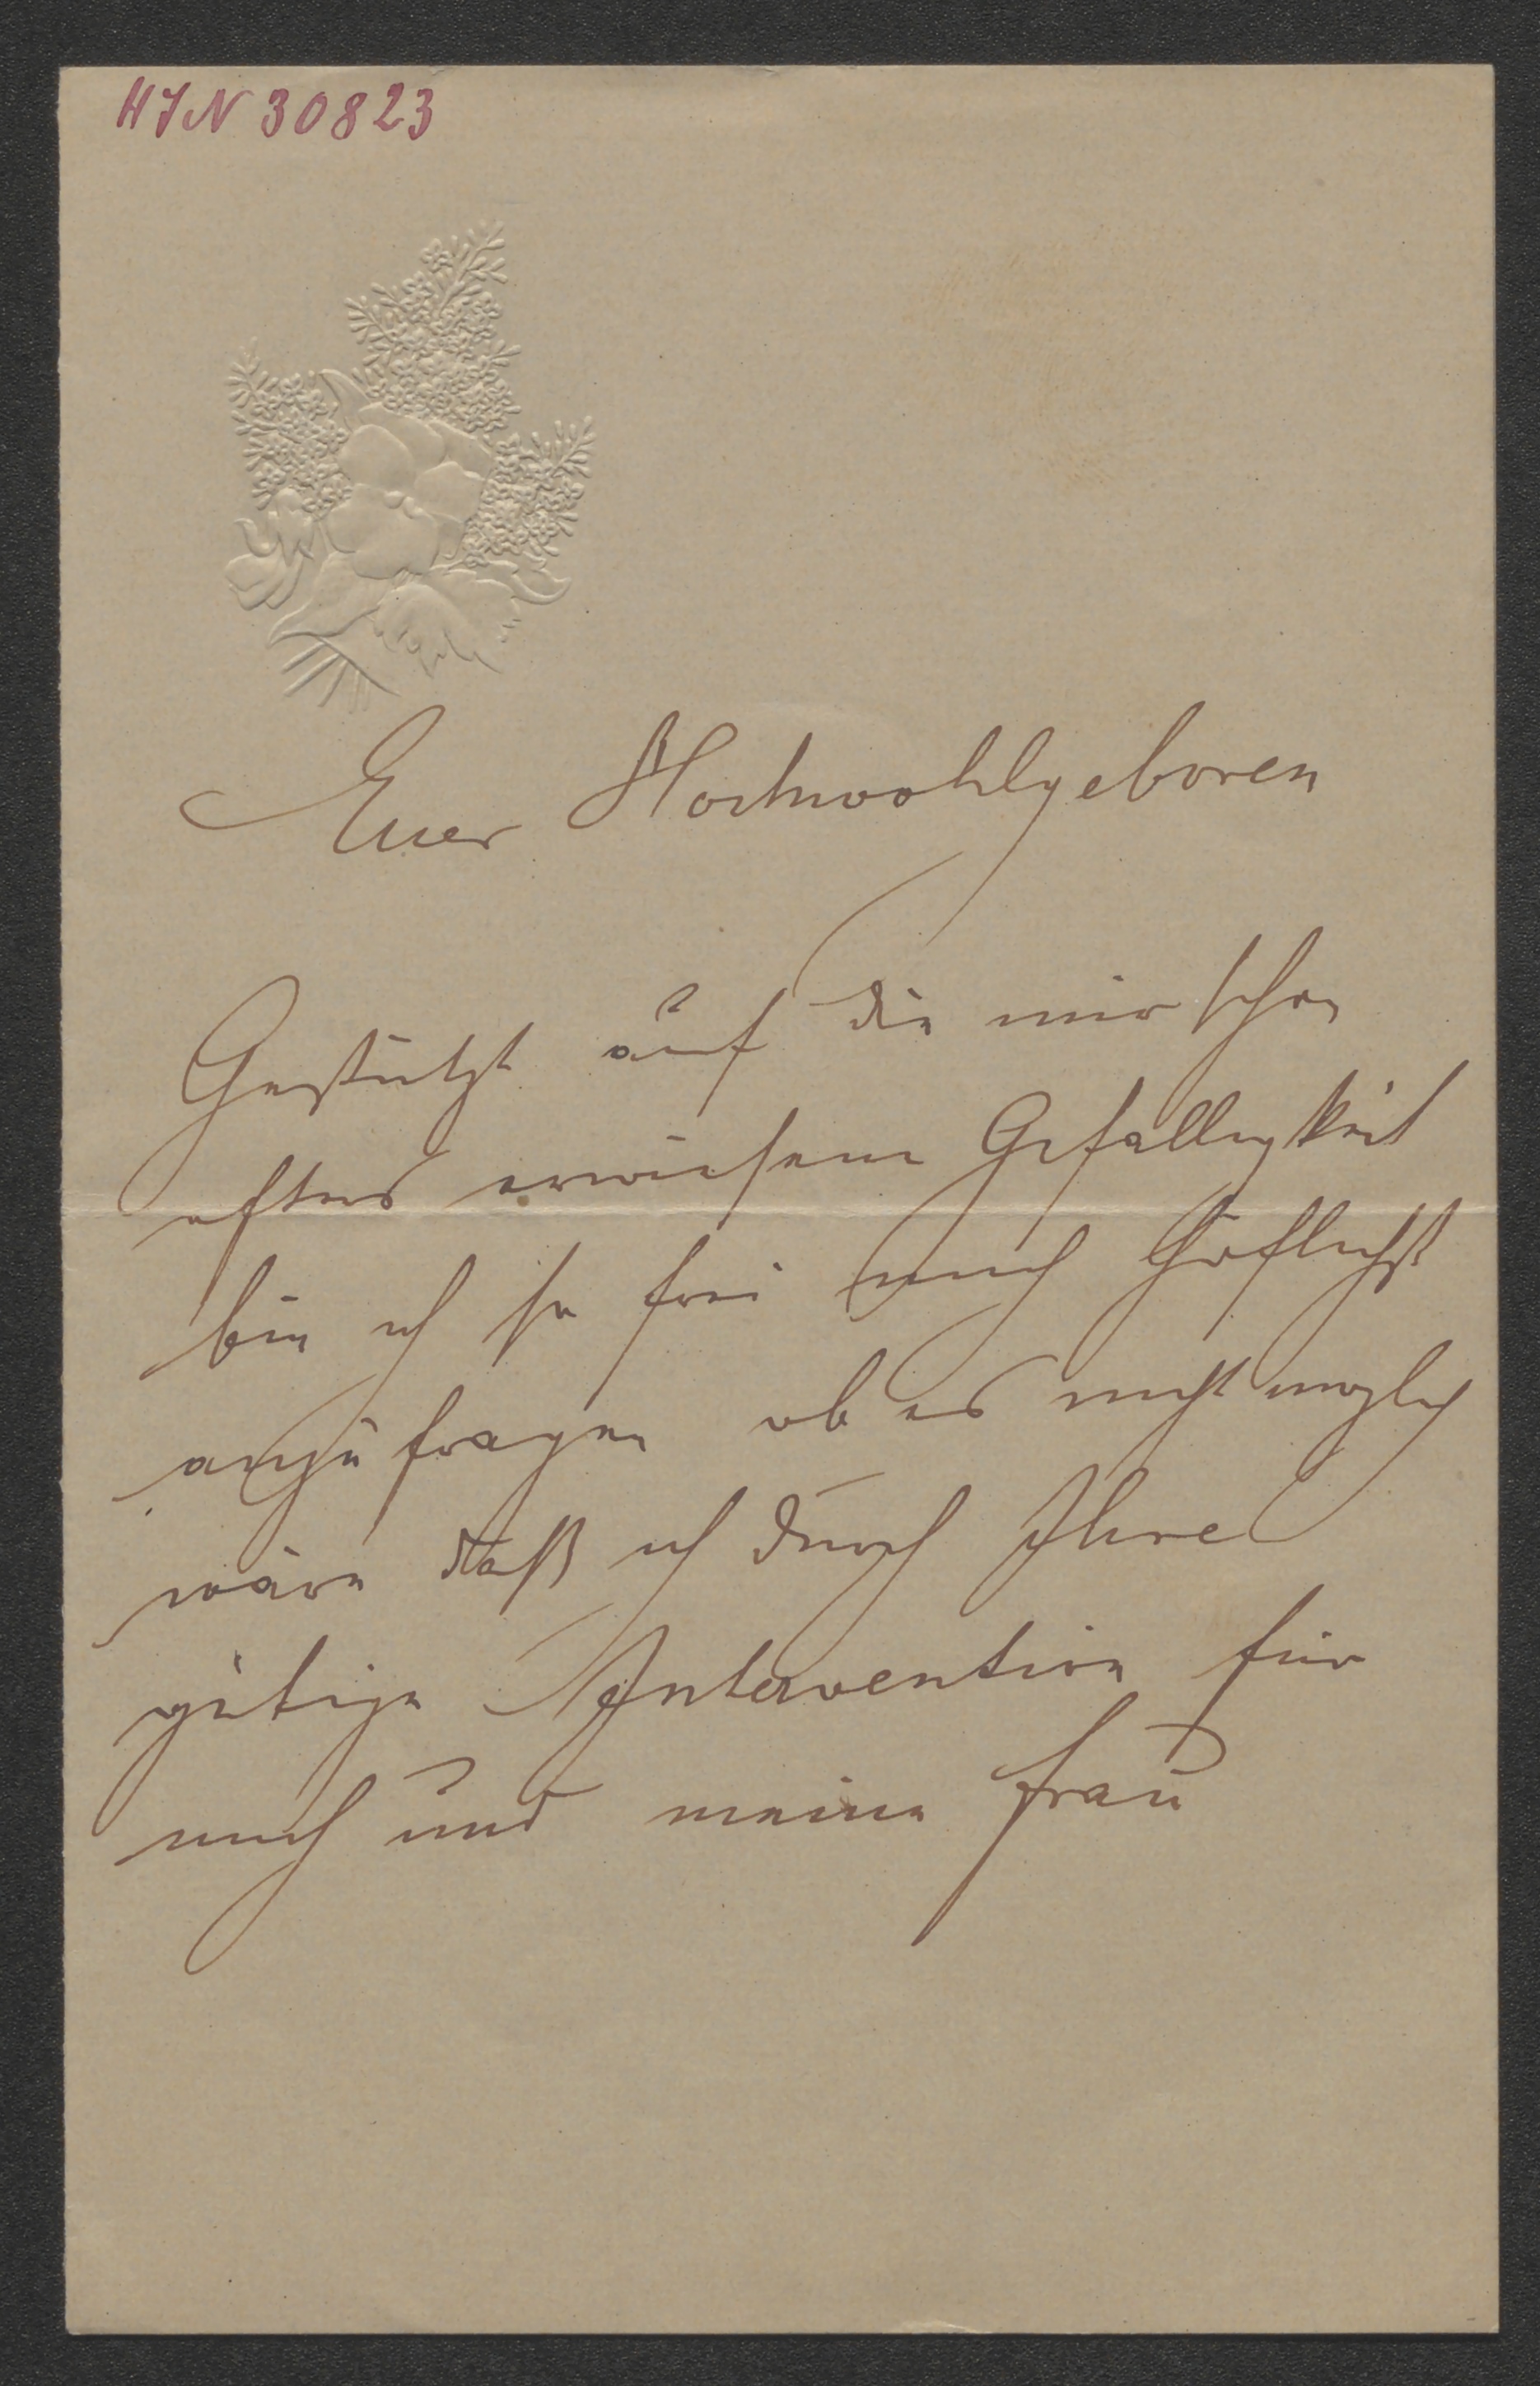 HJN 30823
Euer Hochwohlgeboren
Gestützt auf die mir schon
öfters erwiesene Gefälligkeit
bin ich so frei mich höflichst
anzufragen ob es nicht möglich
wäre daß ich durch Ihre
gütige Intervention für
mich und meine Frau